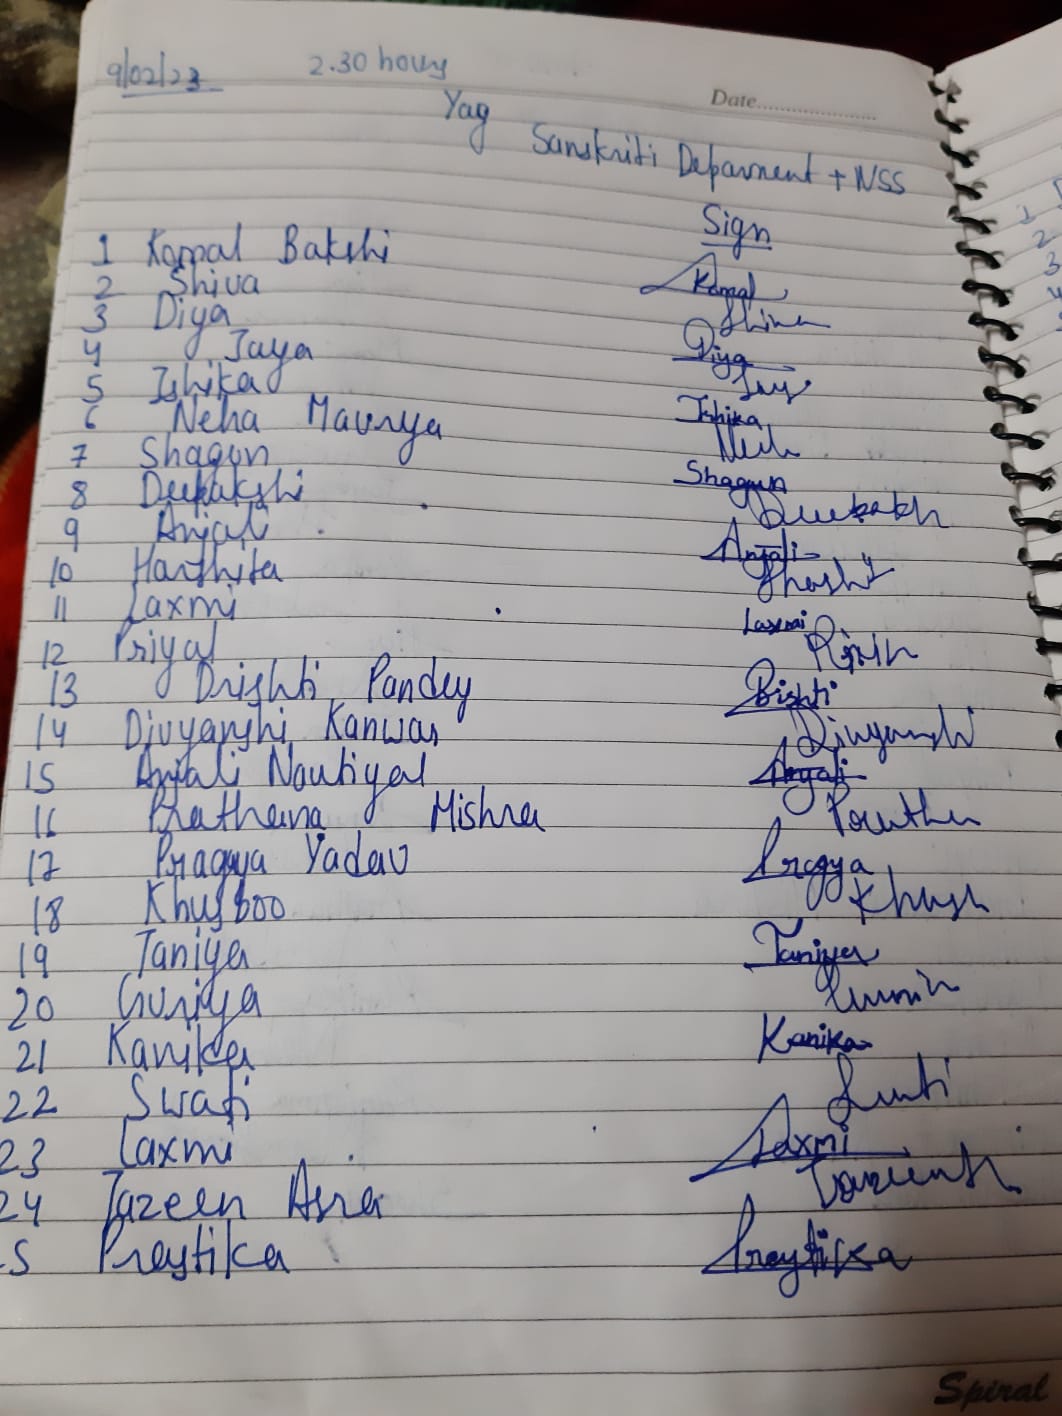 9/02/23 2.30 hours
Date....................
Yag
Sanskriti Deparment + NSS
Sign
1 Komal Bakshi Komal
2 Shiva Shiva
3 Diya Diya
4 Jaya Jay
5 Ishika Ishika
6 Neha Maurya Neh
7 Shagun Shagun
8 Deepakshi
9 Anjali Anjali
10 Harshita
11 Laxmi Laxmi
12 Priyal
13 Drishti Pandey
14 Divyanshi Kanwar Divyanshi
15 Anjali Nautiyal Anjali
16 Prathana Mishra
17 Pragya Yadav Pragya
18 Khusboo Khush
19 Taniya Taniya
20 Guriya
21 Kanika Kanika
22 Swati
23 Laxmi Laxmi
24 Tazeen Asra
Preytika Preytika
Spiral